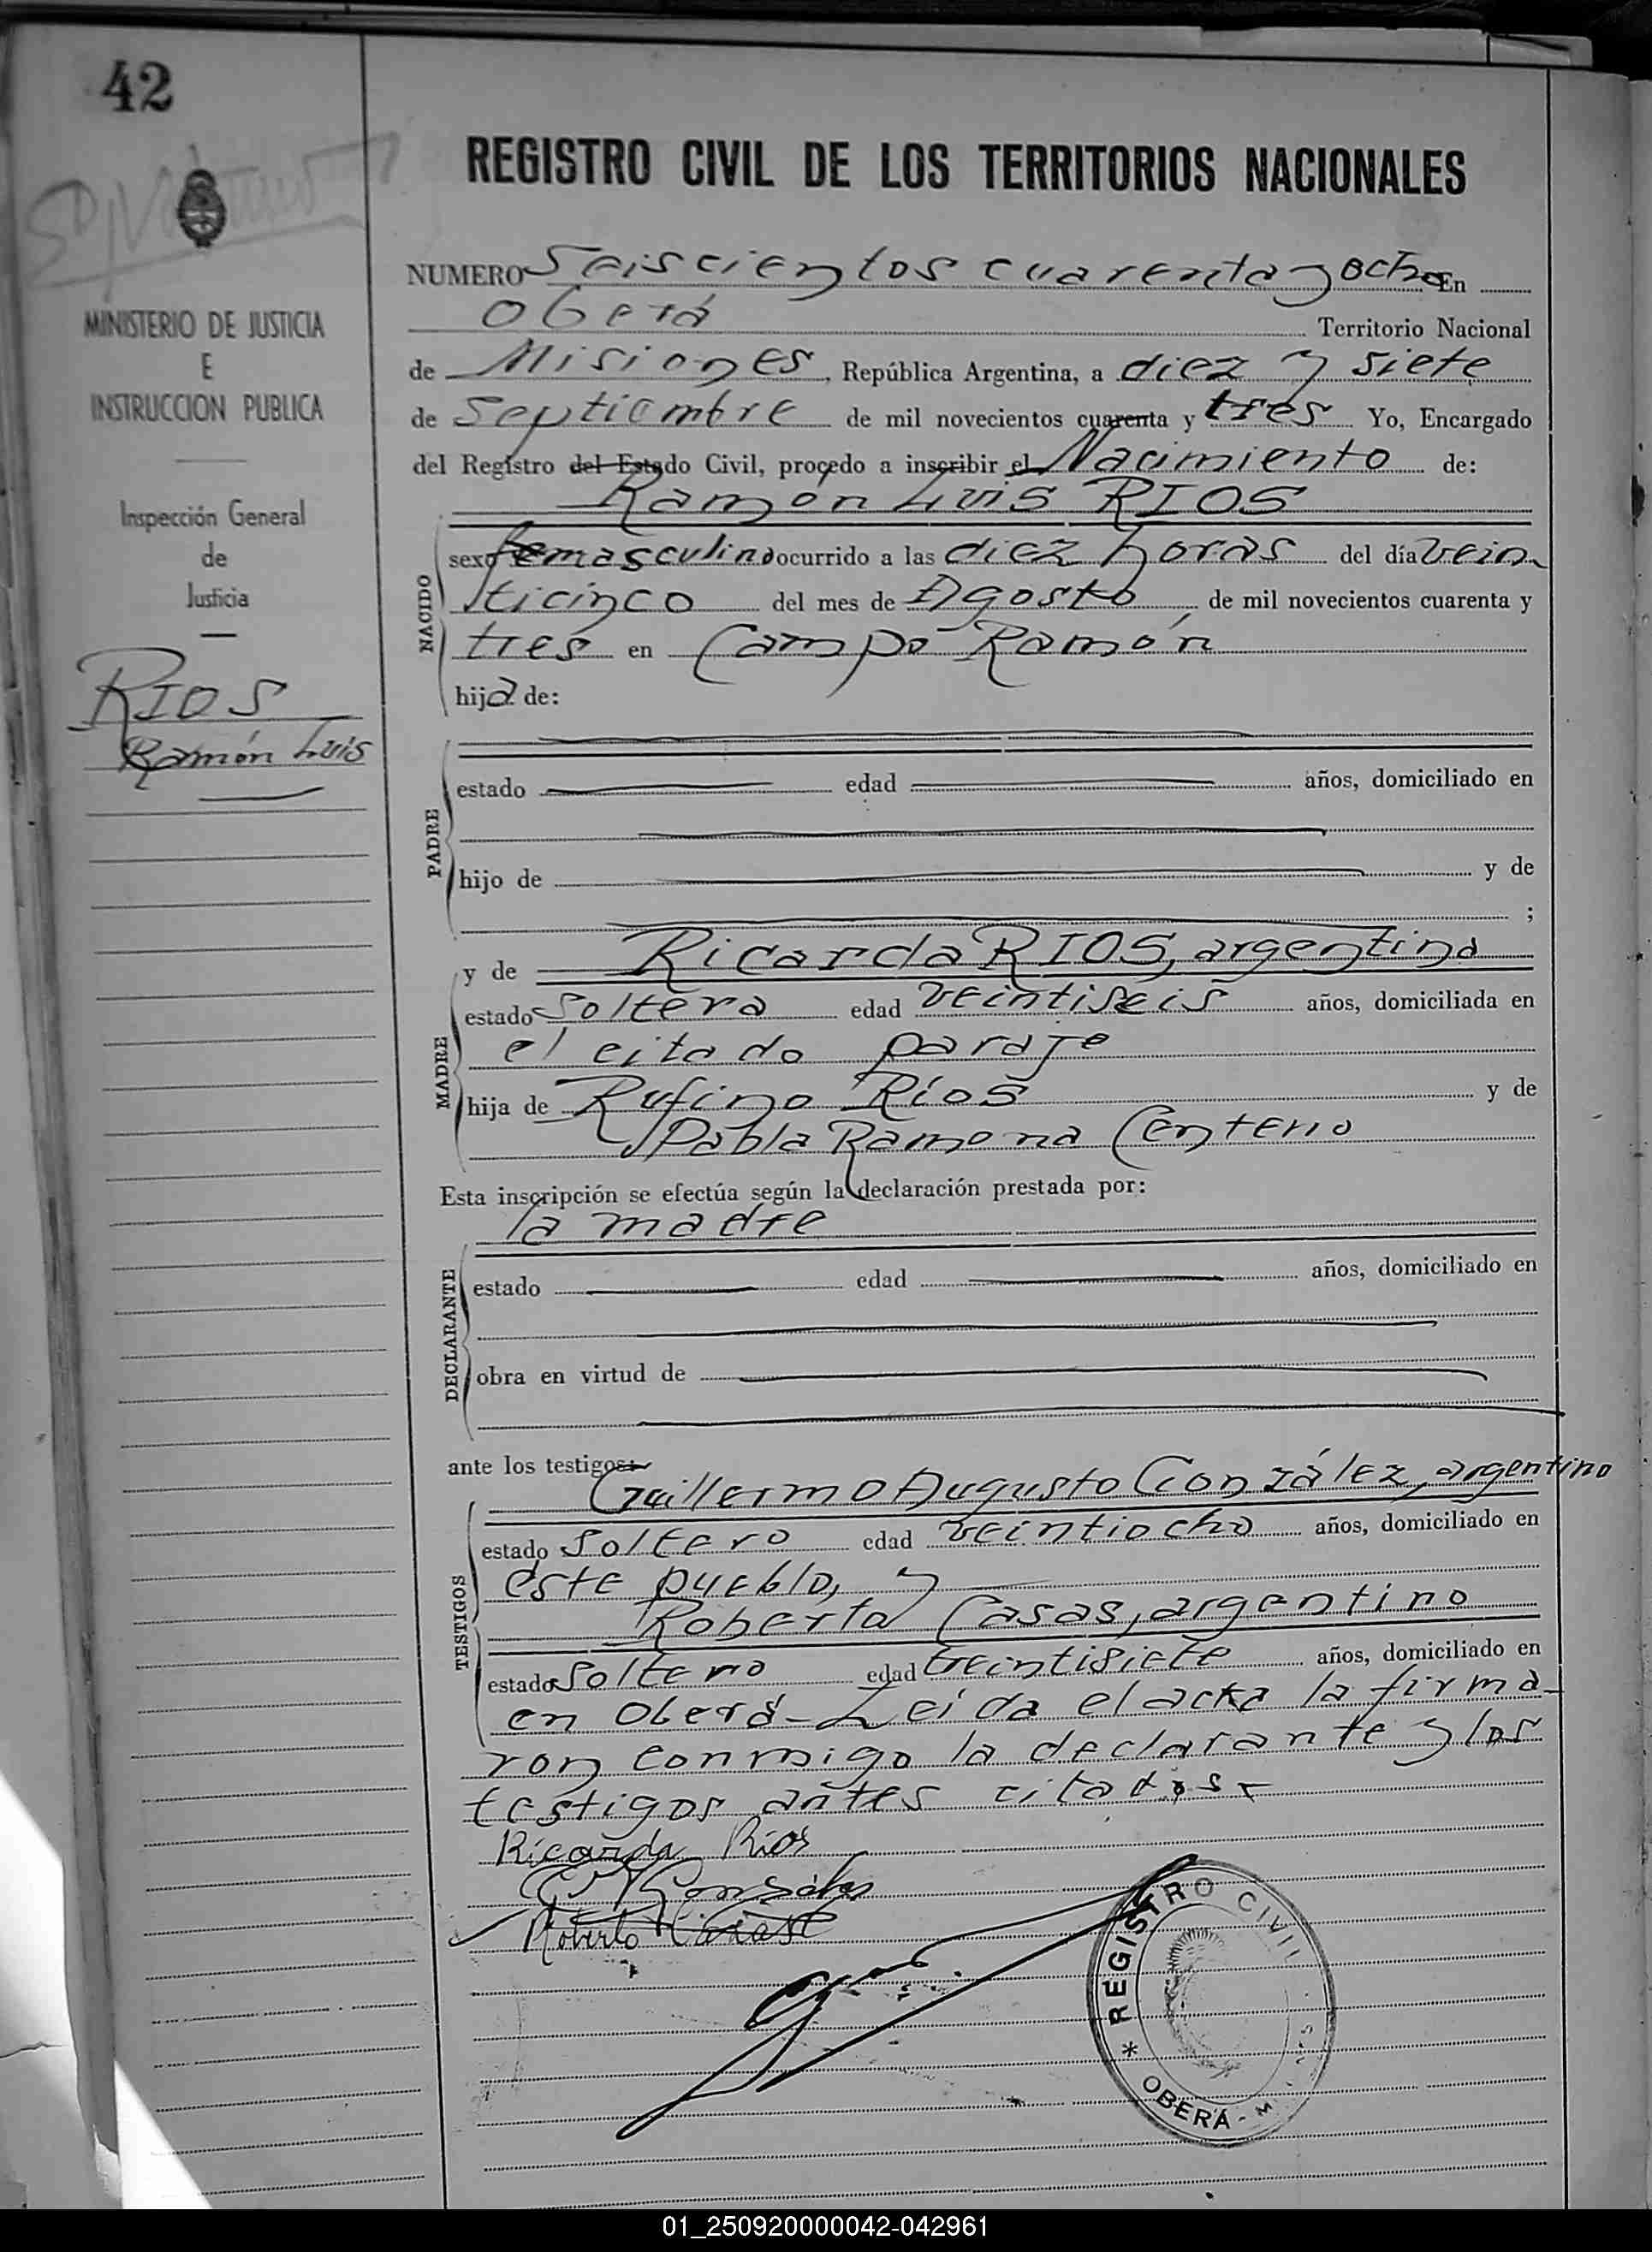 42
REGISTRO CIVIL DE LOS TERRITORIOS NACIONALES
MINISTERIO DE JUSTICIA
E
INSTRUCCION PUBLICA
Inspección General
de
Justicia
RIOS
Ramón Luis
NUMERO Seiscientos cuarenta y ocho En
Oberá Territorio Nacional
de Misiones, República Argentina, a diez y siete
de Septiembre de mil novecientos cuarenta y tres Yo, Encargado
del Registro del Estado Civil, procedo a inscribir el Nacimiento de:
Ramón Luis RIOS
NACIDO
sexo masculino ocurrido a las diez horas del día vein
ticinco del mes de Agosto de mil novecientos cuarenta y
tres en Campo Ramón
hija de:
PADRE
estado edad años, domiciliado en
hijo de y de
;
MADRE
y de Ricarda RIOS, argentina
estado Soltera edad veintiseis años, domiciliada en
el citado paraje
hija de Rufino Ríos y de
Pabla Ramona Centeno
Esta inscripción se efectúa según la declaración prestada por:
la madre
DECLARANTE
estado edad años, domiciliado en
obra en virtud de
ante los testigos:
Guillermo Augusto González, argentino
TESTIGOS
estado Soltero edad veintiocho años, domiciliado en
este pueblo, y
Roberto Casas, argentino
estado Soltero edad veintisiete años, domiciliado en
en Oberá - Leida el acta la firma-
ron conmigo la declarante y los
testigos antes citados
Ricarda Rios
González
Roberto
* REGISTRO CIVIL
OBERÁ - M
01_250920000042-042961